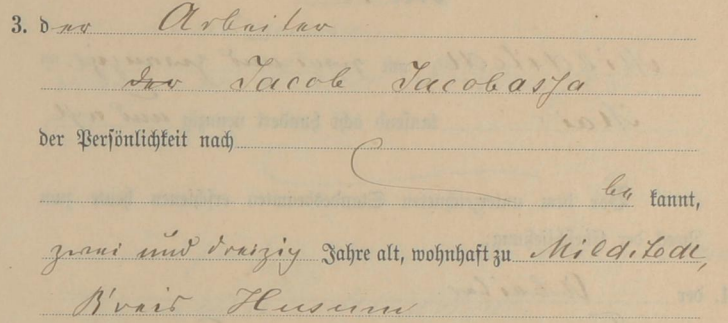 3. der Arbeiter
der Jacob Jacobassa
der Persönlichkeit nach
be kannt,
zwei und dreizig Jahre alt, wohnhaft zu Mildstedt,
Kreis Husum